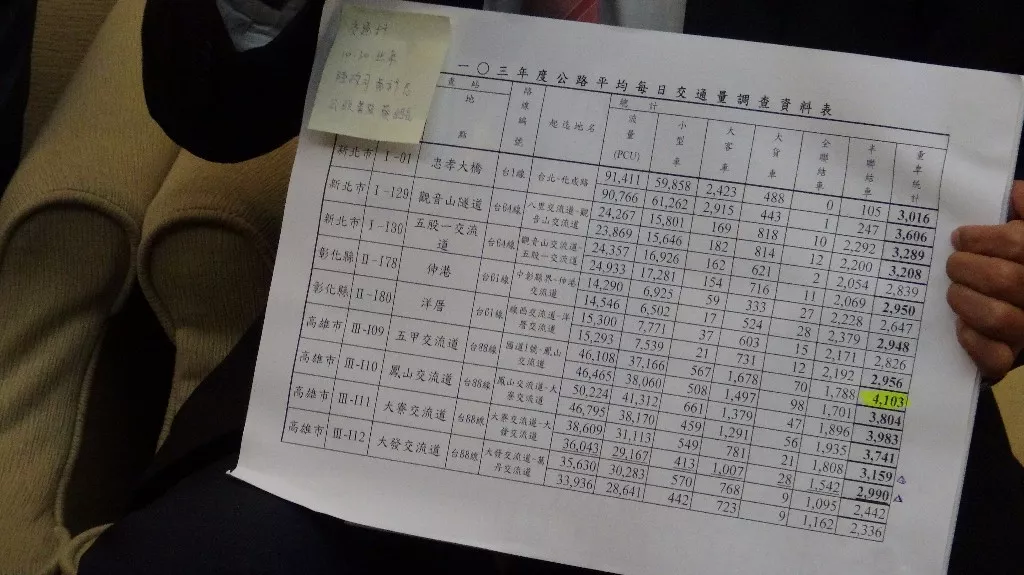 10:20
一〇三年度公路平均每日交通量調查資料表
查站
地點
路線編號
起迄地名
總計
流量(PCU)
小型車
大客車
大貨車
全聯結車
半聯結車
重車統計
新北市 I-01 忠孝大橋 台1線 台北-化成路 91,411 59,858 2,423 488 0 105 3,016
90,766 61,262 2,915 443 1 247 3,606
新北市 I-129 觀音山隧道 台64線 八里交流道-觀音山交流道 24,267 15,801 169 818 10 2,292 3,289
23,869 15,646 182 814 12 2,200 3,208
新北市 I-130 五股一交流道 台64線 觀音山交流道-五股一交流道 24,357 16,926 162 621 2 2,054 2,839
24,933 17,281 154 716 11 2,069 2,950
彰化縣 II-178 伸港 台61線 中彰縣界-伸港交流道 14,290 6,925 59 333 27 2,228 2,647
14,546 6,502 17 524 28 2,379 2,948
彰化縣 II-180 洋厝 台61線 線西交流道-洋厝交流道 15,300 7,771 37 603 15 2,171 2,826
15,293 7,539 21 731 12 2,192 2,956
高雄市 III-109 五甲交流道 台88線 國道1號-鳳山交流道 46,108 37,166 567 1,678 70 1,788 4,103
46,465 38,060 508 1,497 98 1,701 3,804
高雄市 III-110 鳳山交流道 台88線 鳳山交流道-大寮交流道 50,224 41,312 661 1,379 47 1,896 3,983
46,795 38,170 459 1,291 56 1,935 3,741
高雄市 III-111 大寮交流道 台88線 大寮交流道-大發交流道 38,609 31,113 549 781 21 1,808 3,159
36,043 29,167 413 1,007 28 1,542 2,990
高雄市 III-112 大發交流道 台88線 大發交流道-萬丹交流道 35,630 30,283 570 768 9 1,095 2,442
33,936 28,641 442 723 9 1,162 2,336